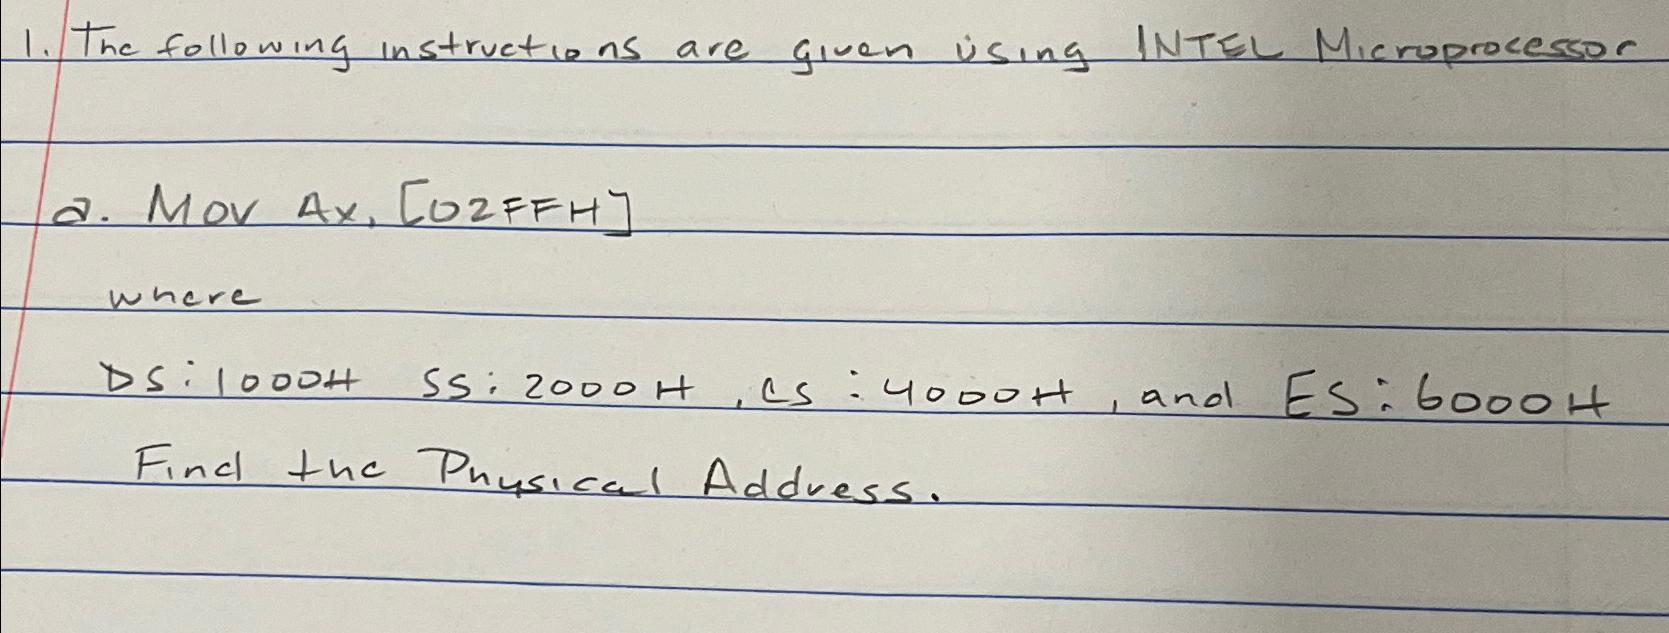 1. The following instructions are given using INTEL Microprocessor
a. Mov Ax, [02FFH]
where
DS: 1000H SS: 2000H, CS: 4000H, and ES: 6000H
Find the Physical Address.